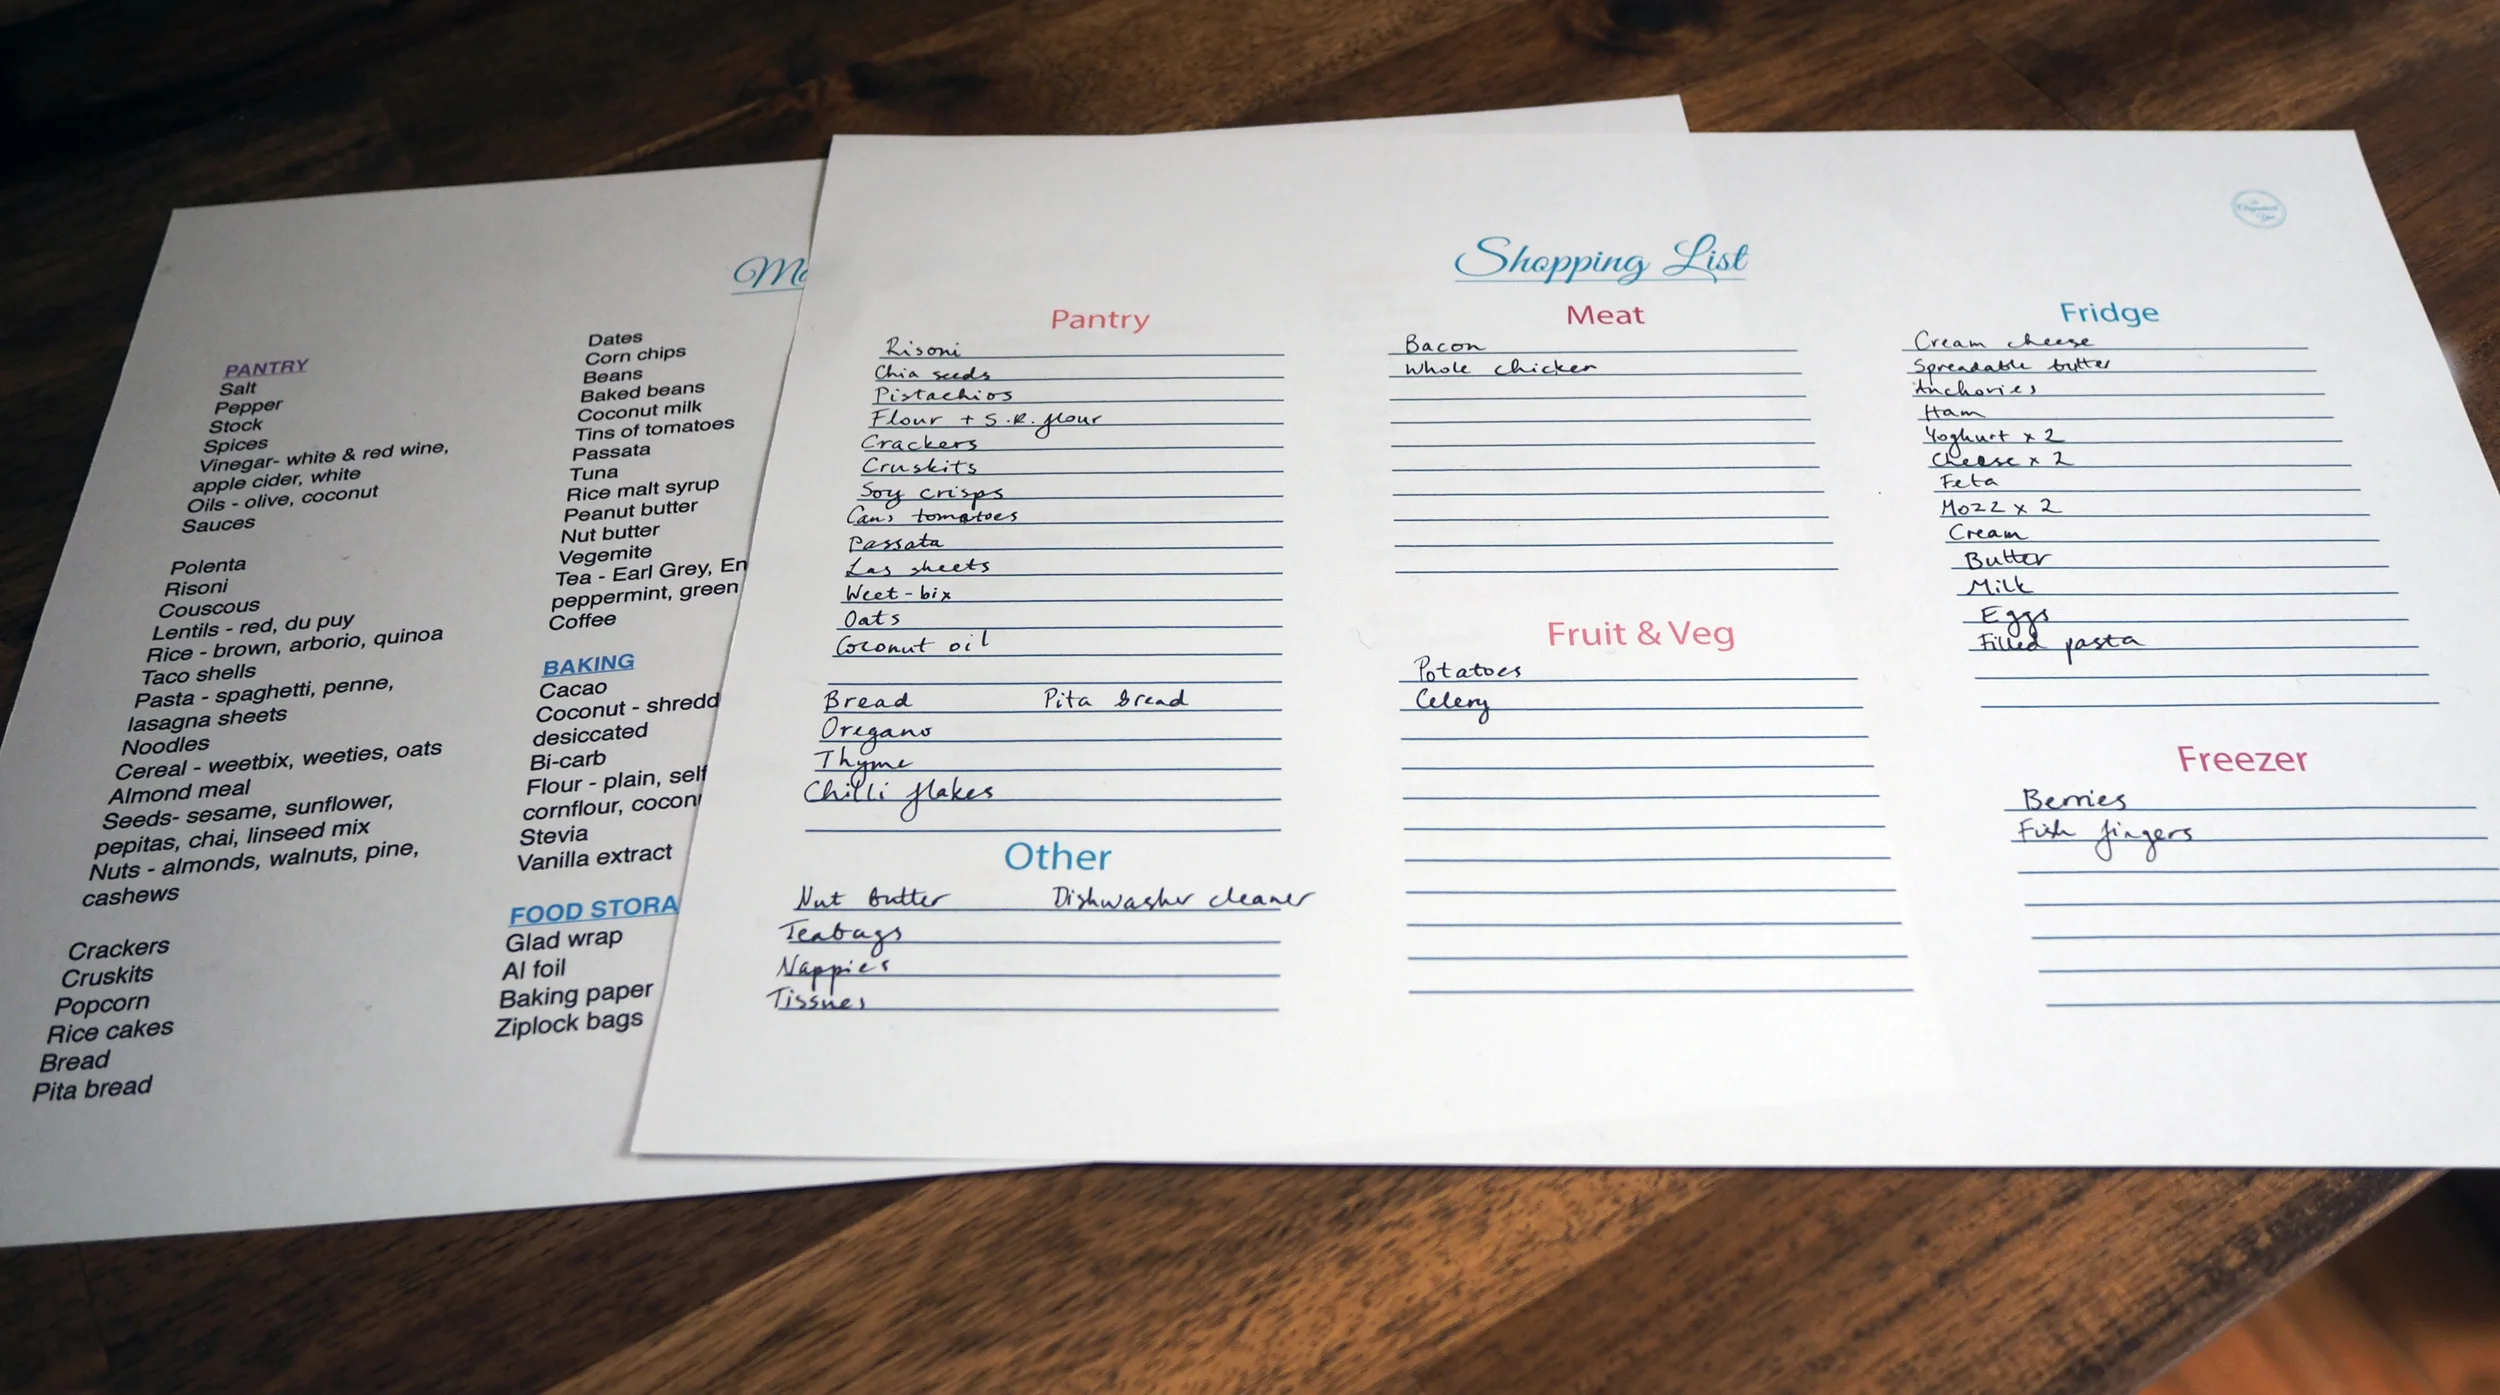 Mo
PANTRY
Salt
Pepper
Stock
Spices
Vinegar- white & red wine,
apple cider, white
Oils - olive, coconut
Sauces
Polenta
Risoni
Couscous
Lentils - red, du puy
Rice - brown, arborio, quinoa
Taco shells
Pasta - spaghetti, penne,
lasagna sheets
Noodles
Cereal - weetbix, weeties, oats
Almond meal
Seeds- sesame, sunflower,
pepitas, chai, linseed mix
Nuts - almonds, walnuts, pine,
cashews
Crackers
Cruskits
Popcorn
Rice cakes
Bread
Pita bread
Dates
Corn chips
Beans
Baked beans
Coconut milk
Tins of tomatoes
Passata
Tuna
Rice malt syrup
Peanut butter
Nut butter
Vegemite
Tea - Earl Grey, En
peppermint, green
Coffee
BAKING
Cacao
Coconut - shredd
desiccated
Bi-carb
Flour - plain, self
cornflour, cocon
Stevia
Vanilla extract
FOOD STORA
Glad wrap
Al foil
Baking paper
Ziplock bags
Shopping List
Pantry
Risoni
Chia seeds
Pistachios
Flour + S.R. flour
Crackers
Cruskits
Soy crisps
Cans tomatoes
Passata
Las sheets
Weet-bix
Oats
Coconut oil
Bread Pita bread
Oregano
Thyme
Chilli flakes
Other
Nut butter Dishwasher cleaner
Teabags
Nappies
Tissues
Meat
Bacon
Whole chicken
Fruit & Veg
Potatoes
Celery
The
Organised
You
Fridge
Cream cheese
Spreadable butter
Anchovies
Ham
Yoghurt x 2
Cheese x 2
Feta
Mozz x 2
Cream
Butter
Milk
Eggs
Filled pasta
Freezer
Berries
Fish fingers